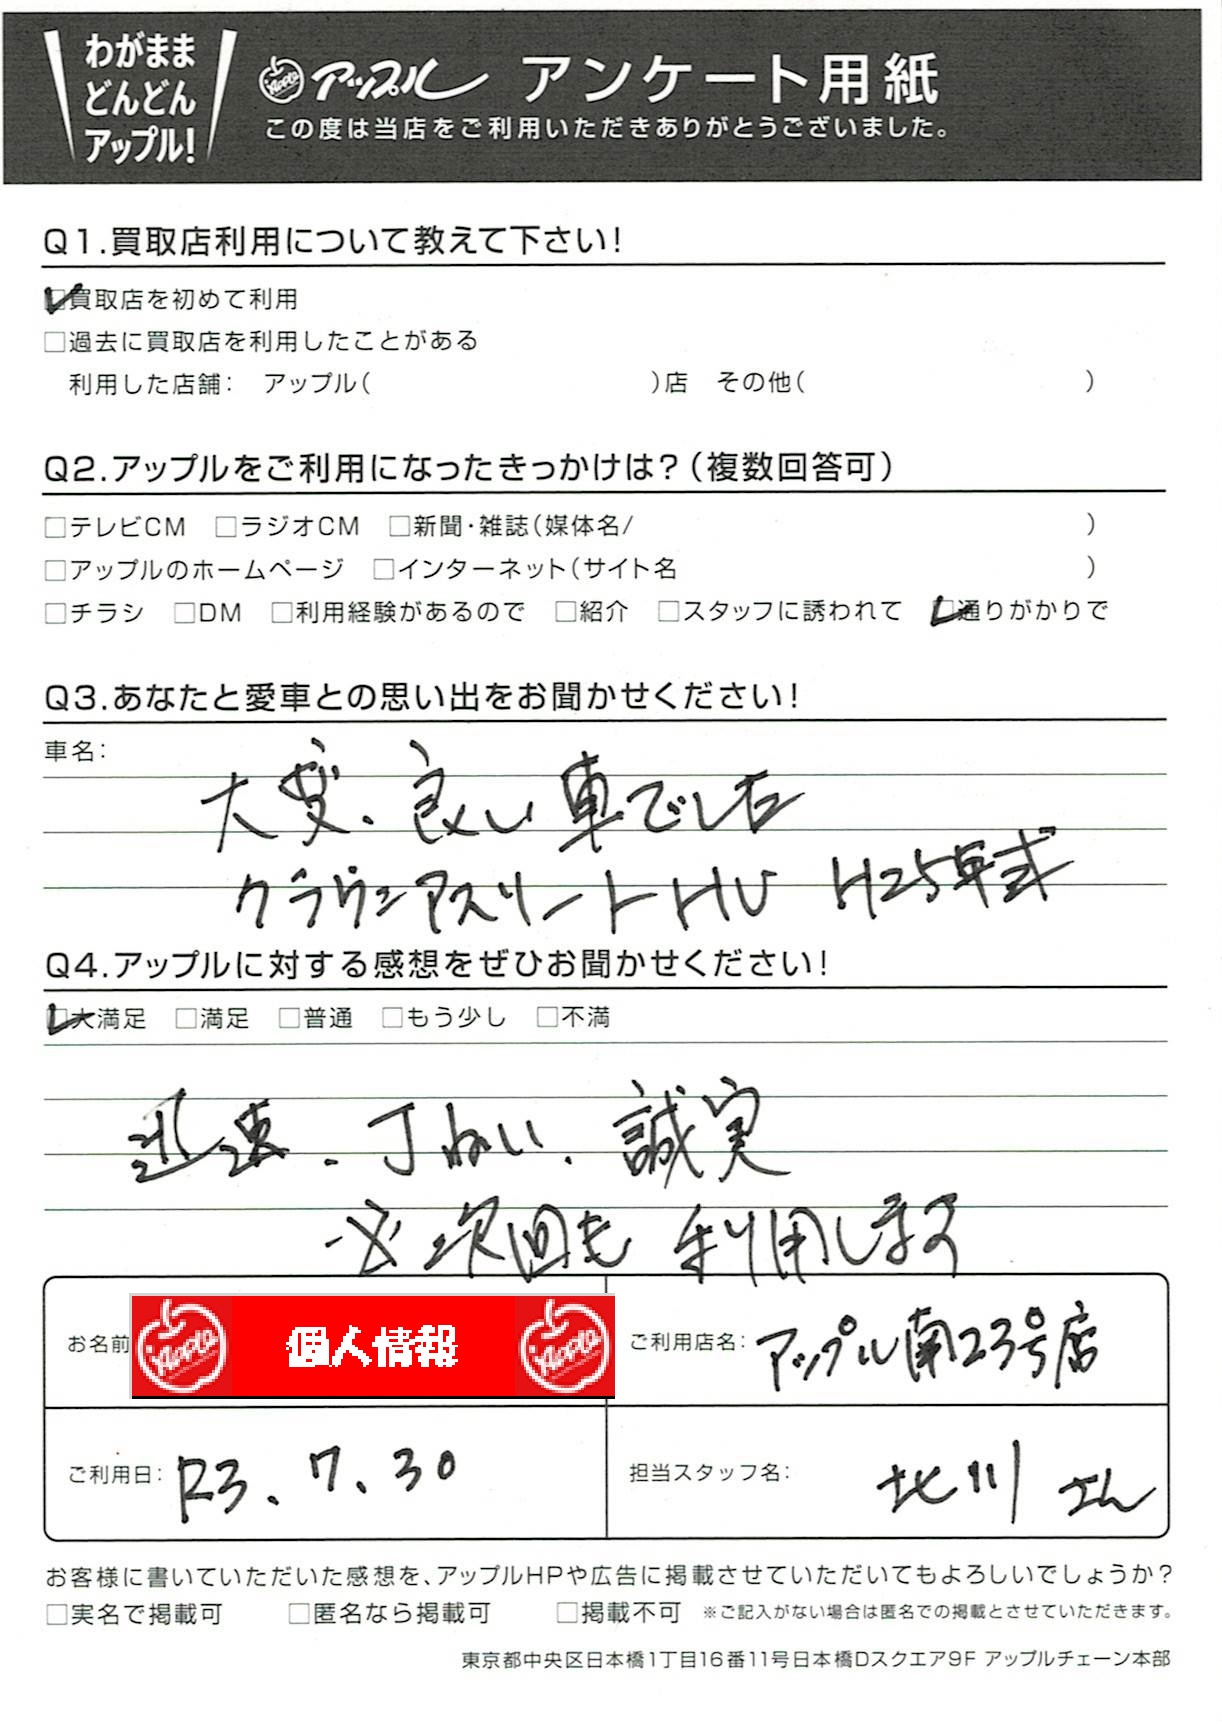 わがまま
どんどん
アップル!
Apple アップル アンケート用紙
この度は当店をご利用いただきありがとうございました。
Q1.買取店利用について教えて下さい!
☑買取店を初めて利用
□過去に買取店を利用したことがある
利用した店舗: アップル( )店 その他( )
Q2.アップルをご利用になったきっかけは?(複数回答可)
□テレビCM □ラジオCM □新聞・雑誌(媒体名/ )
□アップルのホームページ □インターネット(サイト名 )
□チラシ □DM □利用経験があるので □紹介 □スタッフに誘われて ☑通りがかりで
Q3.あなたと愛車との思い出をお聞かせください!
車名:
大変、良い車でした
クラウンアスリートHV H25年式
Q4.アップルに対する感想をぜひお聞かせください!
☑大満足 □満足 □普通 □もう少し □不満
迅速、丁ねい、誠実
必次回も利用します
お名前 Apple 個人情報 Apple
ご利用店名: アップル南23号店
ご利用日: R3.7.30
担当スタッフ名: 北川さん
お客様に書いていただいた感想を、アップルHPや広告に掲載させていただいてもよろしいでしょうか?
□実名で掲載可 □匿名なら掲載可 □掲載不可 ※ご記入がない場合は匿名での掲載とさせていただきます。
東京都中央区日本橋1丁目16番11号日本橋Dスクエア9F アップルチェーン本部